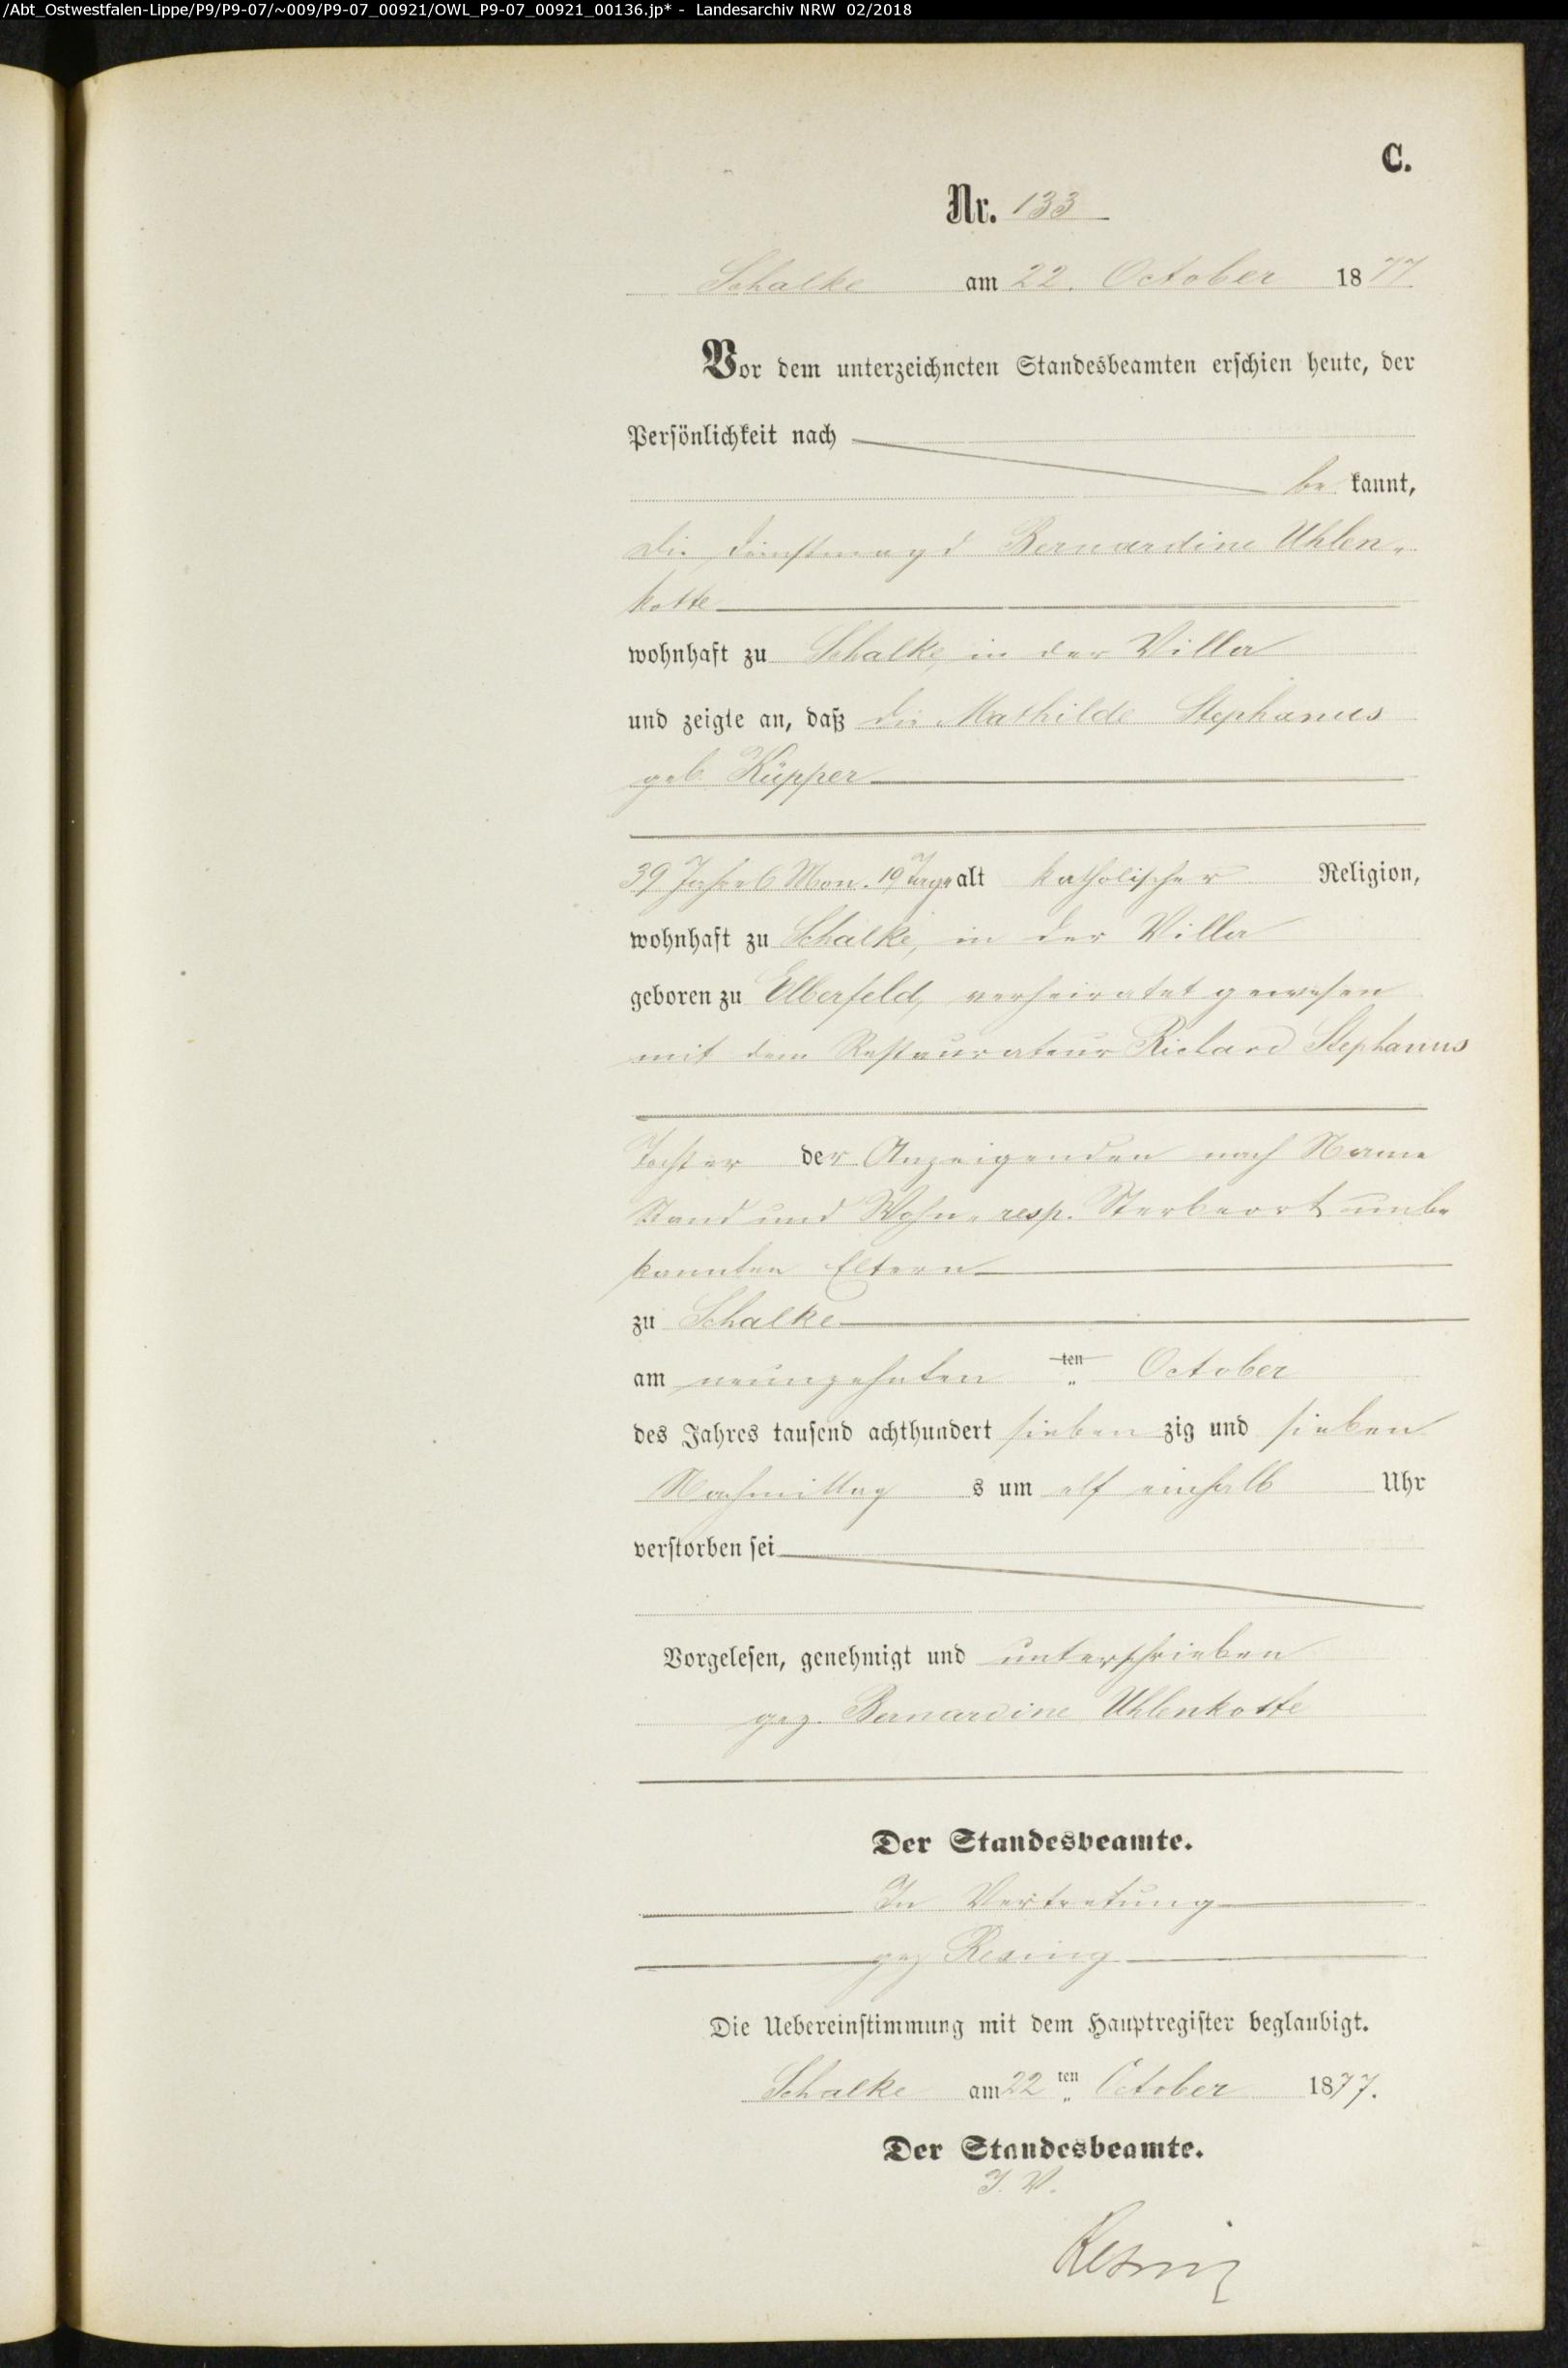 /Abt_Ostwestfalen-Lippe/P9/P9-07/~009/P9-07_00921/OWL_P9-07_00921_00136.jp* - Landesarchiv NRW 02/2018
C.
Nr. 133
Schalke am 22. October 1877.
Vor dem unterzeichneten Standesbeamten erschien heute, der
Persönlichkeit nach
be kannt,
die Dienstmagd Bernardine Uhlen-
kotte
wohnhaft zu Schalke, in der Villa
und zeigte an, daß die Mathilde Stephanus
geb. Küpper
39 Jahre 6 Mon. 19 Tage alt katholischer Religion,
wohnhaft zu Schalke, in der Villa
geboren zu Elberfeld, verheiratet gewesen
mit dem Restaurateur Richard Stephanus
Tochter der Anzeigenden nach Name
Stand und Wohn- resp. Sterbeort unbe
kannten Eltern
zu Schalke
am neunzehnten ten October
des Jahres tausend achthundert sieben zig und sieben
Nachmittag s um elf einhalb Uhr
verstorben sei
Vorgelesen, genehmigt und unterschrieben
gez. Bernardine Uhlenkotte
Der Standesbeamte.
In Vertretung
gez Resing
Die Uebereinstimmung mit dem Hauptregister beglaubigt.
Schalke am 22 ten October 1877.
Der Standesbeamte.
I. V.
Resing